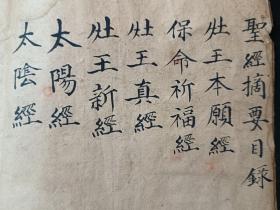 聖經摘要目錄
灶王本願經
保命祈福經
灶王真經
灶王新經
太陽經
太陰經